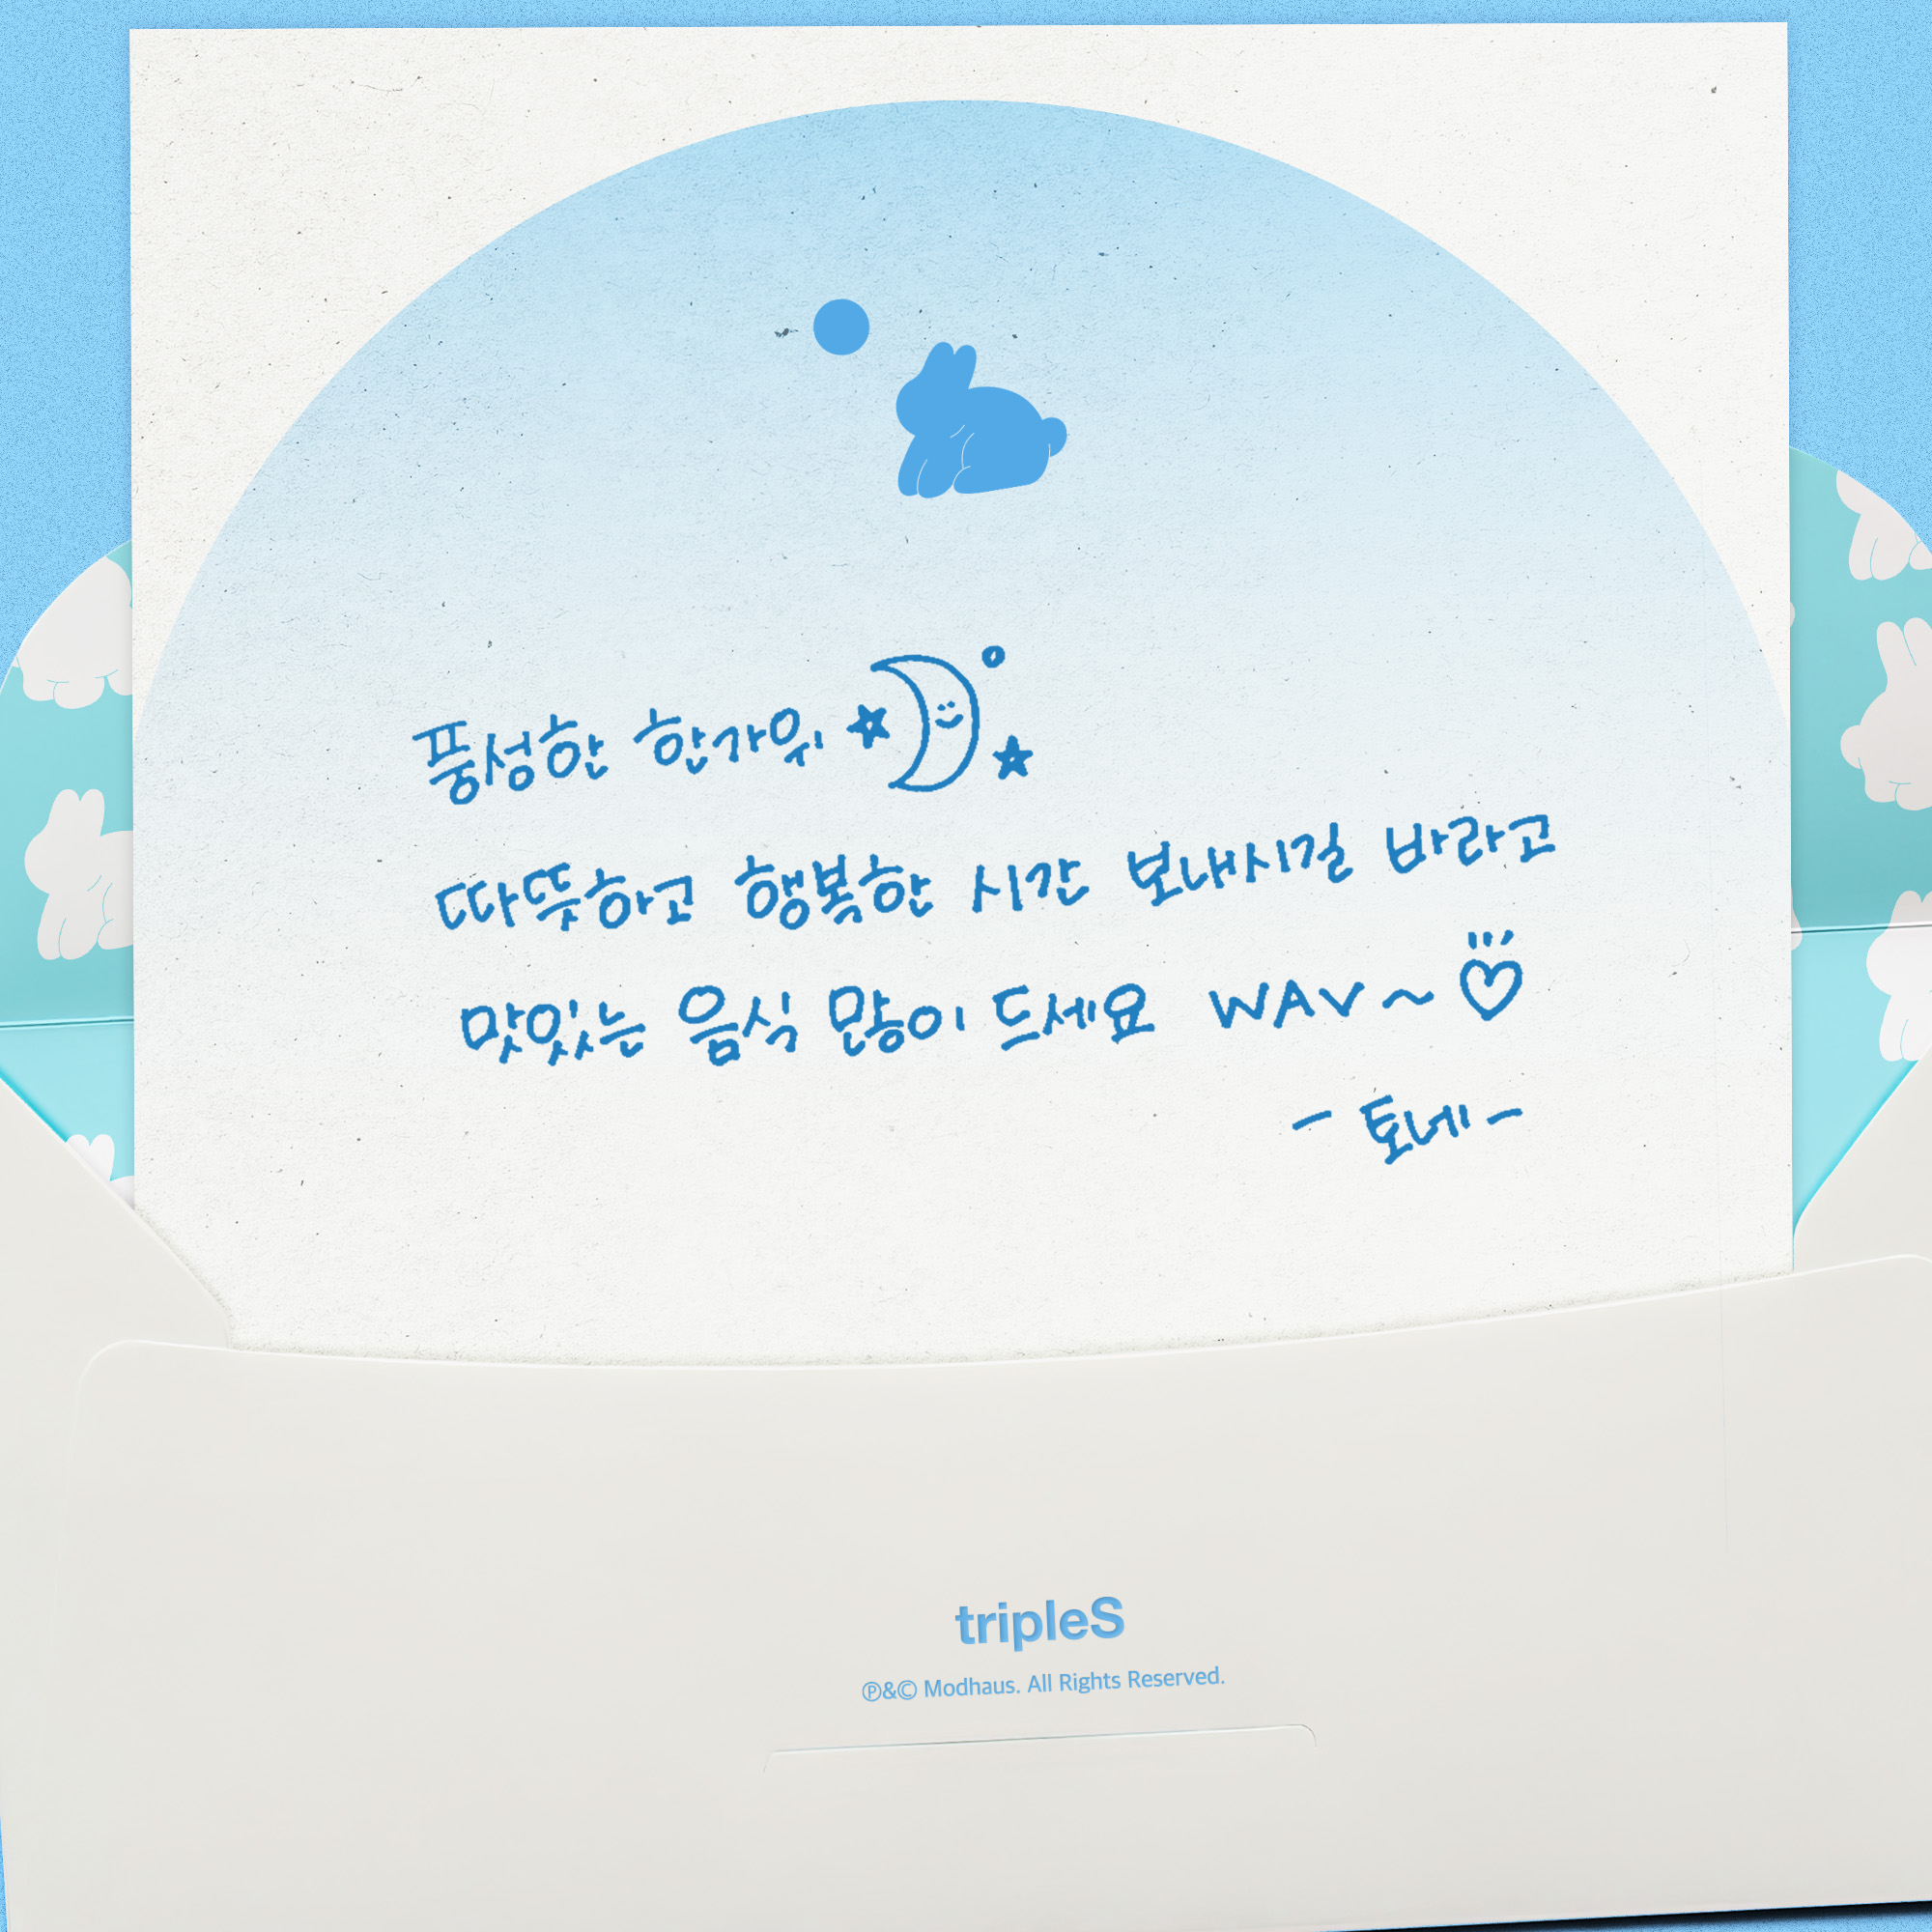 풍성한 한가위
따뜻하고 행복한 시간 보내시길 바라고
맛있는 음식 많이 드세요 WAV~♡
- 토네 -
tripleS
℗&© Modhaus. All Rights Reserved.